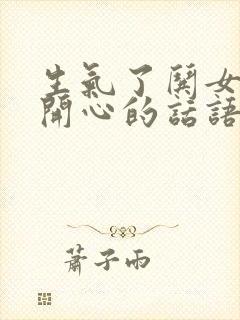 生氣了鬨女
開心的話語
蕭子雨